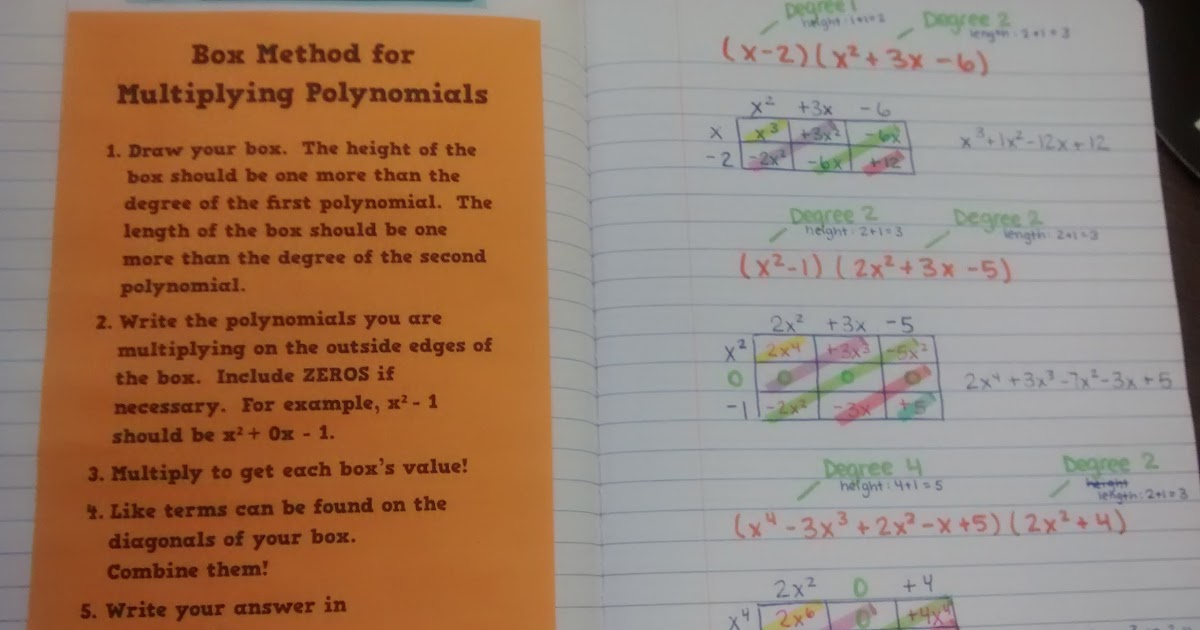 Box Method for
Multiplying Polynomials
1. Draw your box. The height of the
box should be one more than the
degree of the first polynomial. The
length of the box should be one
more than the degree of the second
polynomial.
2. Write the polynomials you are
multiplying on the outside edges of
the box. Include ZEROS if
necessary. For example, x² - 1
should be x² + 0x - 1.
3. Multiply to get each box's value!
4. Like terms can be found on the
diagonals of your box.
Combine them!
5. Write your answer in
Degree 1
height: 1+1=2
Degree 2
length: 2+1=3
(x-2)(x²+3x-6)
x² +3x -6
x x³ +3x² -6x
-2 -2x² -6x +12
x³+1x²-12x+12
Degree 2
height: 2+1=3
Degree 2
length: 2+1=3
(x²-1)(2x²+3x-5)
2x² +3x -5
x² 2x⁴ +3x³ -5x²
0 0 0 0
-1 -2x² -3x +5
2x⁴+3x³-7x²-3x+5
Degree 4
height: 4+1=5
Degree 2
height
length: 2+1=3
(x⁴-3x³+2x²-x+5)(2x²+4)
2x² 0 +4
x⁴ 2x⁶ 0 +4x⁴